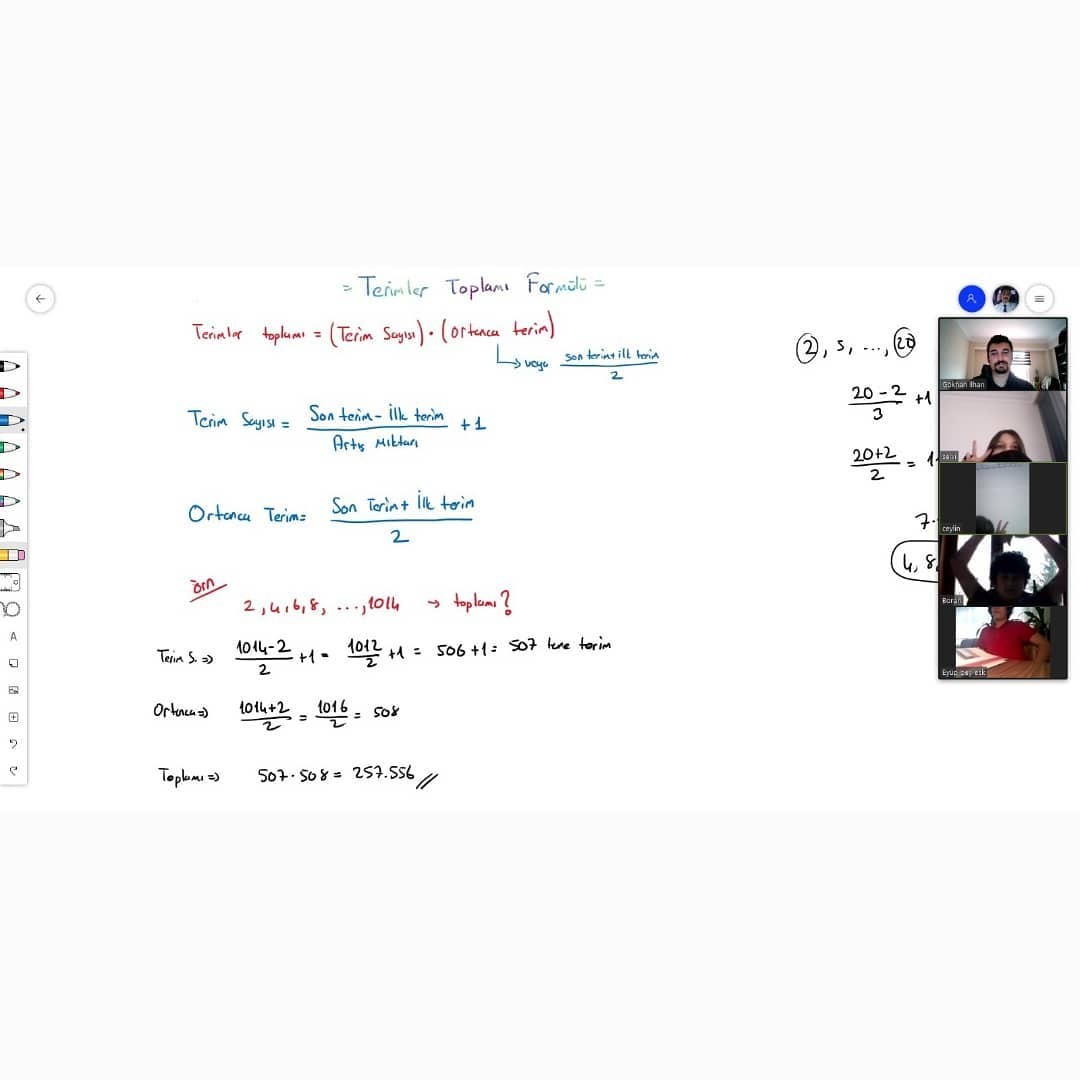 = Terimler Toplamı Formülü =
Terimler toplamı = (Terim Sayısı) · (ortanca terim)
↳ veya son terim + ilk terim
2
Terim Sayısı = Son terim - İlk terim + 1
Artış Miktarı
Ortanca Terim = Son Terim + İlk terim
2
örn
2, 4, 6, 8, ..., 1014 → toplamı?
Terim S. ⇒ 1014-2/2 +1 = 1012/2 +1 = 506 +1 = 507 tane terim
Ortanca ⇒ 1014+2/2 = 1016/2 = 508
Toplamı ⇒ 507 · 508 = 257.556 //
2, 5, ..., 20
20-2/3 +1
20+2/2 = 1
7.
4, 8
A
Gökhan İlhan
ceylin
Boran